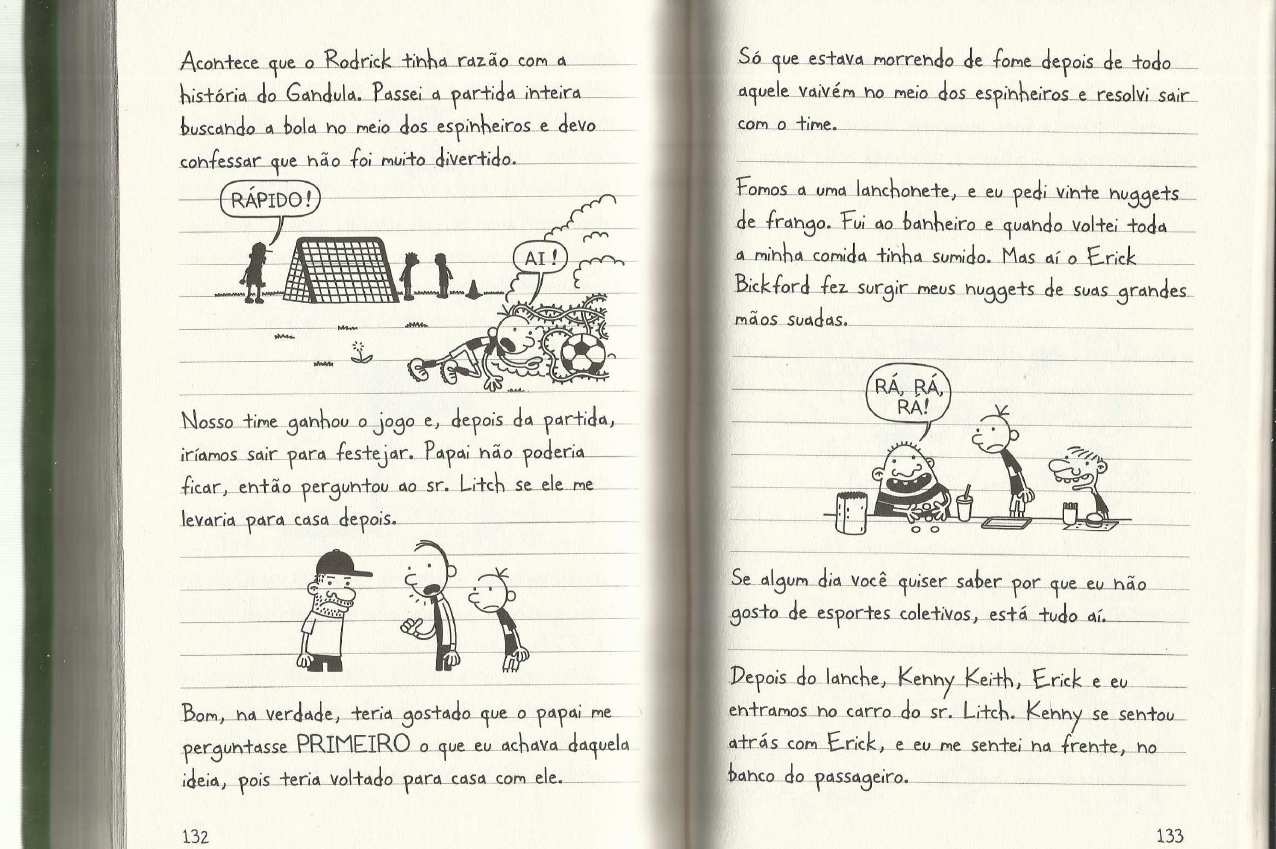 Acontece que o Rodrick tinha razão com a
história do Gandula. Passei a partida inteira
buscando a bola no meio dos espinheiros e devo
confessar que não foi muito divertido.
RÁPIDO!
AI!
Nosso time ganhou o jogo e, depois da partida,
iríamos sair para festejar. Papai não poderia
ficar, então perguntou ao sr. Litch se ele me
levaria para casa depois.
Bom, na verdade, teria gostado que o papai me
perguntasse PRIMEIRO o que eu achava daquela
ideia, pois teria voltado para casa com ele.
132
Só que estava morrendo de fome depois de todo
aquele vaivém no meio dos espinheiros e resolvi sair
com o time.
Fomos a uma lanchonete, e eu pedi vinte nuggets
de frango. Fui ao banheiro e quando voltei toda
a minha comida tinha sumido. Mas aí o Erick
Bickford fez surgir meus nuggets de suas grandes
mãos suadas.
RÁ, RÁ,
RÁ!
Se algum dia você quiser saber por que eu não
gosto de esportes coletivos, está tudo aí.
Depois do lanche, Kenny Keith, Erick e eu
entramos no carro do sr. Litch. Kenny se sentou
atrás com Erick, e eu me sentei na frente, no
banco do passageiro.
133